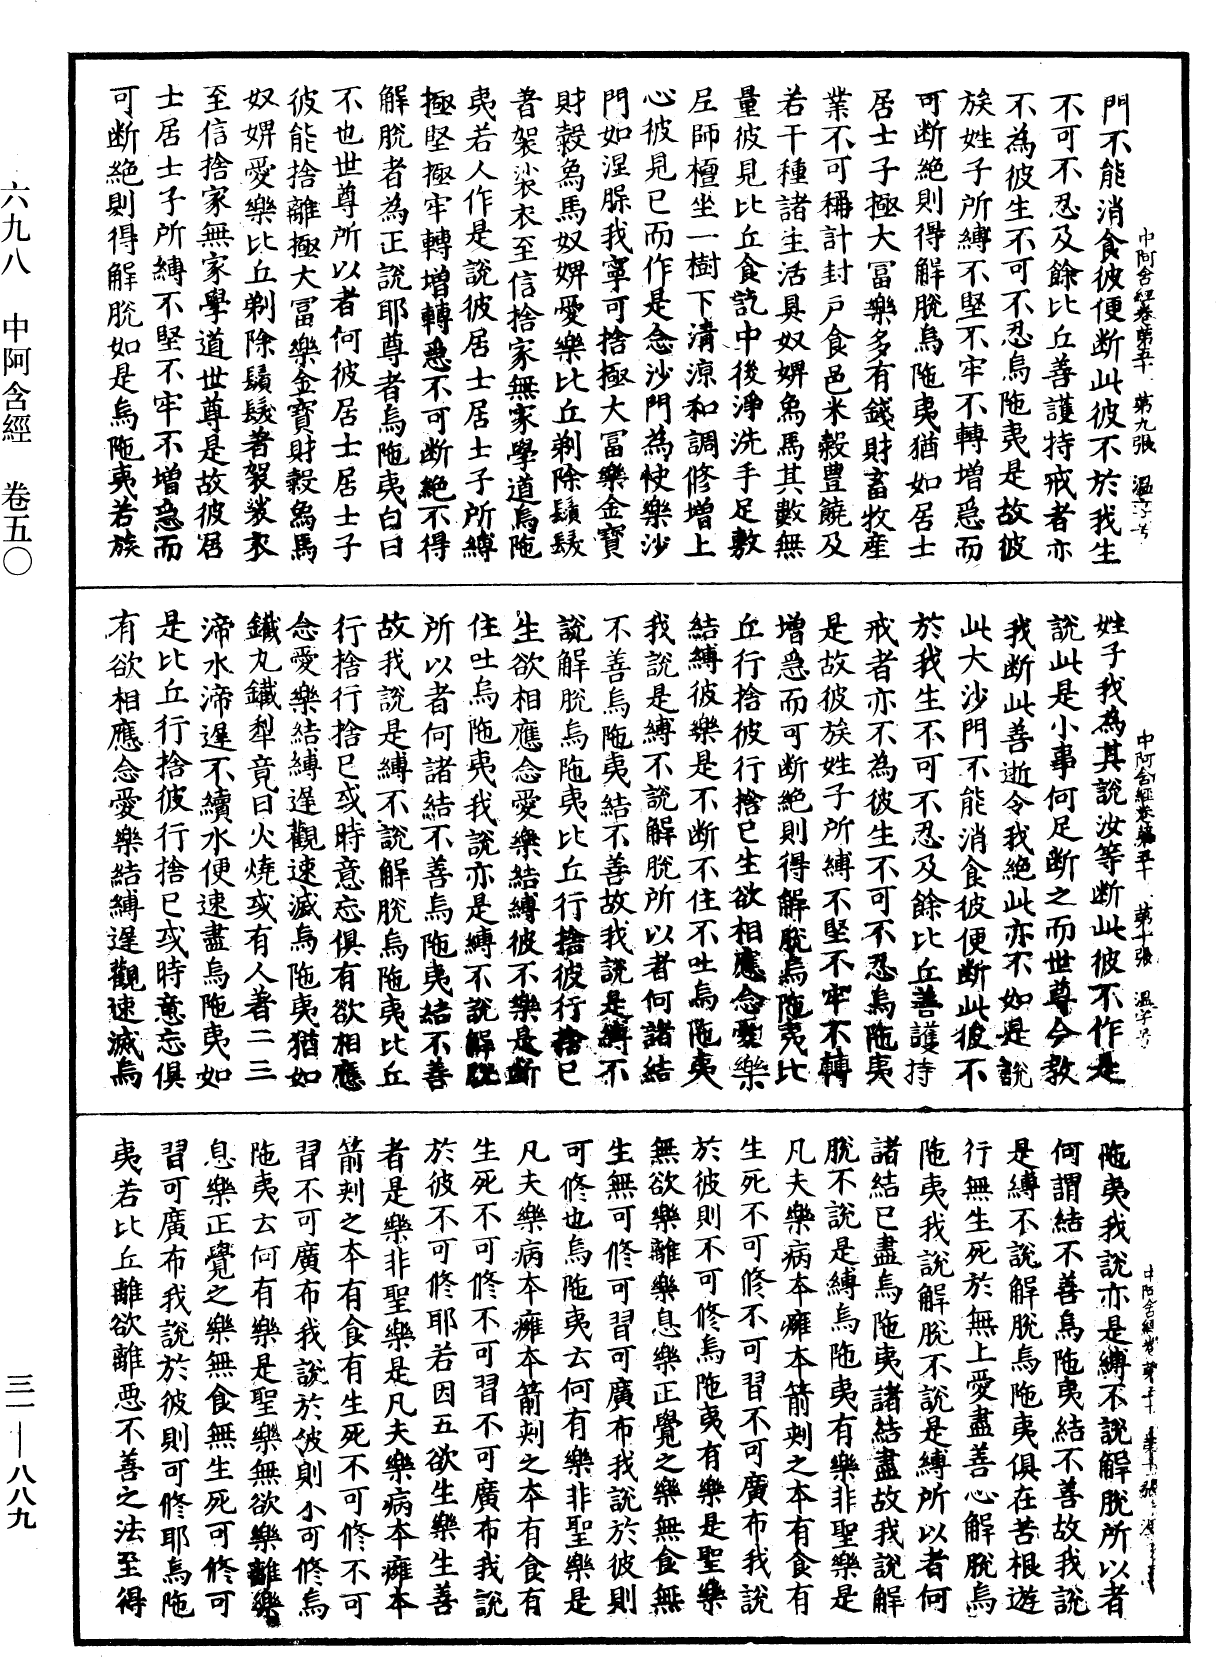 六九八　中阿含經　卷五〇
三一—八八九
門不能消食彼便断此彼不於我生
不可不忍及餘比丘善護持戒者亦
不為彼生不可不忍烏陁夷是故彼
族姓子所縛不堅不牢不轉增急而
可断絶則得解脫烏陁夷猶如居士
居士子極大冨樂多有錢財畜牧産
業不可稱計封戸食邑米穀豊饒及
若干種諸生活具奴婢象馬其數無
量彼見比丘食訖中後淨洗手足敷
尼師檀坐一樹下清涼和調修增上
心彼見已而作是念沙門為快樂沙
門如涅槃我寧可捨極大冨樂金寶
財穀象馬奴婢愛樂比丘剃除鬚髮
著袈裟衣至信捨家無家學道烏陁
夷若人作是說彼居士居士子所縛
極堅極牢轉增轉急不可断絶不得
解脫者為正說耶尊者烏陁夷白曰
不也世尊所以者何彼居士居士子
彼能捨離極大冨樂金寶財穀象馬
奴婢愛樂比丘剃除鬚髮著袈裟衣
至信捨家無家學道世尊是故彼居
士居士子所縛不堅不牢不增急而
可断絶則得解脫如是烏陁夷若族
中阿含經卷第五十　第九張　温字号
姓子我為其說汝等断此彼不作是
說此是小事何足断之而世尊今教
我断此善逝令我絶此亦不如是說
此大沙門不能消食彼便断此彼不
於我生不可不忍及餘比丘善護持
戒者亦不為彼生不可不忍烏陁夷
是故彼族姓子所縛不堅不牢不轉
增急而可断絶則得解脫烏陁夷比
丘行捨彼行捨已生欲相應念愛樂
結縛彼樂是不断不住不吐烏陁夷
我說是縛不說解脫所以者何諸結
不善烏陁夷結不善故我說是縛不
說解脫烏陁夷比丘行捨彼行捨已
生欲相應念愛樂結縛彼不樂是断
住吐烏陁夷我說亦是縛不說解脫
所以者何諸結不善烏陁夷結不善
故我說是縛不說解脫烏陁夷比丘
行捨行捨已或時意忘俱有欲相應
念愛樂結縛遲觀速滅烏陁夷猶如
鐵丸鐵犁竟日火燒或有人著二三
渧水渧遲不續水便速盡烏陁夷如
是比丘行捨彼行捨已或時意忘俱
有欲相應念愛樂結縛遲觀速滅烏
中阿含經卷第五十　第十張　温字号
陁夷我說亦是縛不說解脫所以者
何謂結不善烏陁夷結不善故我說
是縛不說解脫烏陁夷俱在苦根遊
行無生死於無上愛盡善心解脫烏
陁夷我說解脫不說是縛所以者何
諸結已盡烏陁夷諸結盡故我說解
脫不說是縛烏陁夷有樂非聖樂是
凡夫樂病本癰本箭刾之本有食有
生死不可修不可習不可廣布我說
於彼則不可修烏陁夷有樂是聖樂
無欲樂離樂息樂正覺之樂無食無
生無可修可習可廣布我說於彼則
可修也烏陁夷云何有樂非聖樂是
凡夫樂病本癰本箭刾之本有食有
生死不可修不可習不可廣布我說
於彼不可修耶若因五欲生樂生善
者是樂非聖樂是凡夫樂病本癰本
箭刾之本有食有生死不可修不可
習不可廣布我說於彼則不可修烏
陁夷云何有樂是聖樂無欲樂離樂
息樂正覺之樂無食無生死可修可
習可廣布我說於彼則可修耶烏陁
夷若比丘離欲離惡不善之法至得
中阿含經卷第五十